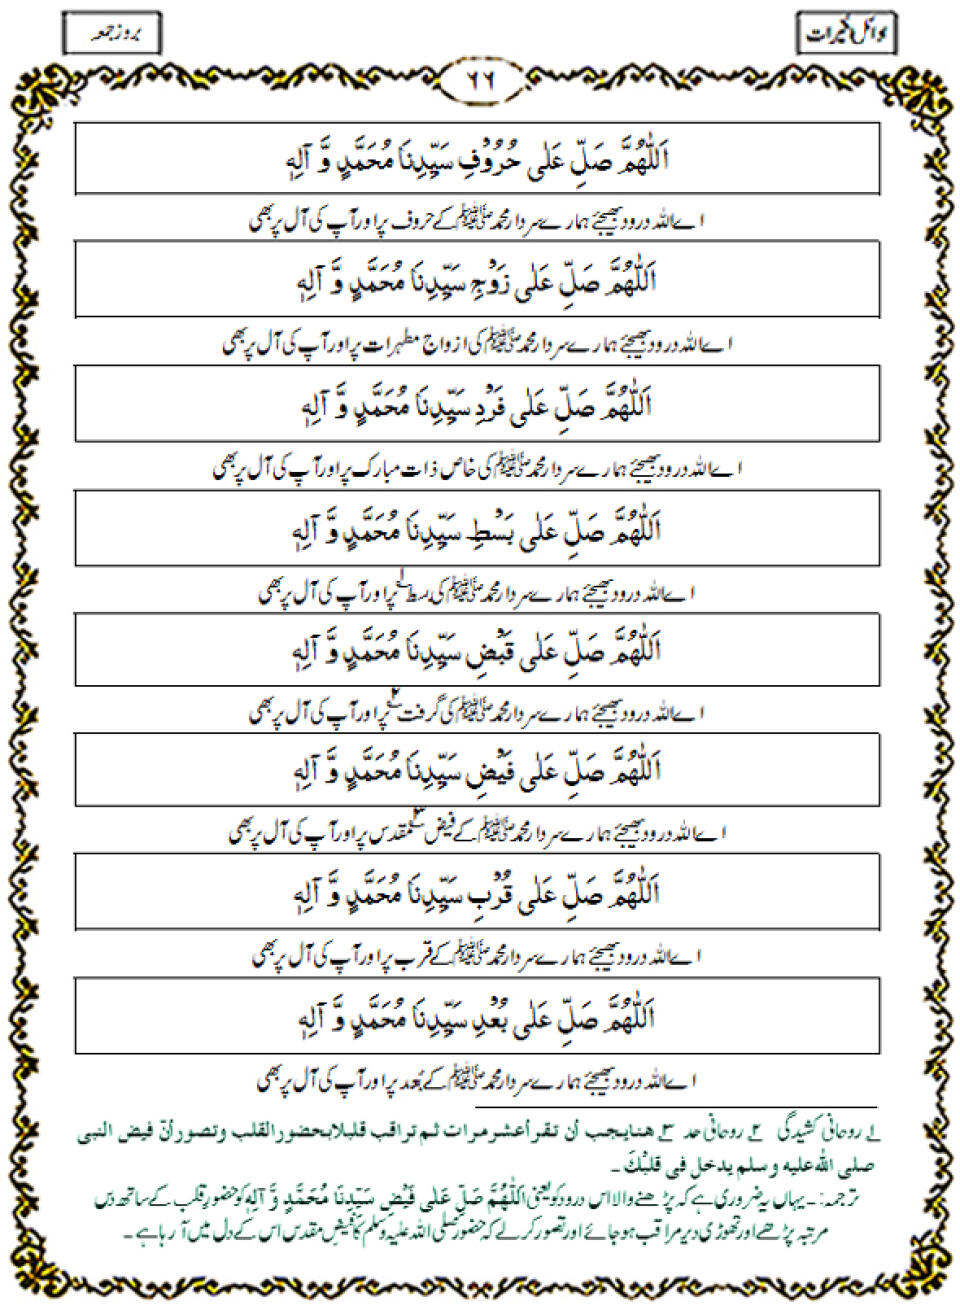 بروز جمعہ
٦٦
اَللّٰهُمَّ صَلِّ عَلٰی حُرُوْفِ سَيِّدِنَا مُحَمَّدٍ وَّ آلِهٖ
اے اللہ درود بھیجئے ہمارے سردار محمد ﷺ کے حروف پر اور آپ کی آل پر بھی
اَللّٰهُمَّ صَلِّ عَلٰی زَوْجِ سَيِّدِنَا مُحَمَّدٍ وَّ آلِهٖ
اے اللہ درود بھیجئے ہمارے سردار محمد ﷺ کی ازواج مطہرات پر اور آپ کی آل پر بھی
اَللّٰهُمَّ صَلِّ عَلٰی فَرْدِ سَيِّدِنَا مُحَمَّدٍ وَّ آلِهٖ
اے اللہ درود بھیجئے ہمارے سردار محمد ﷺ کی خاص ذات مبارک پر اور آپ کی آل پر بھی
اَللّٰهُمَّ صَلِّ عَلٰی بَسْطِ سَيِّدِنَا مُحَمَّدٍ وَّ آلِهٖ
اے اللہ درود بھیجئے ہمارے سردار محمد ﷺ کی بسط ۱؎ پر اور آپ کی آل پر بھی
اَللّٰهُمَّ صَلِّ عَلٰی قَبْضِ سَيِّدِنَا مُحَمَّدٍ وَّ آلِهٖ
اے اللہ درود بھیجئے ہمارے سردار محمد ﷺ کی گرفت ۲؎ پر اور آپ کی آل پر بھی
اَللّٰهُمَّ صَلِّ عَلٰی فَيْضِ سَيِّدِنَا مُحَمَّدٍ وَّ آلِهٖ
اے اللہ درود بھیجئے ہمارے سردار محمد ﷺ کے فیض ۳؎ مقدس پر اور آپ کی آل پر بھی
اَللّٰهُمَّ صَلِّ عَلٰی قُرْبِ سَيِّدِنَا مُحَمَّدٍ وَّ آلِهٖ
اے اللہ درود بھیجئے ہمارے سردار محمد ﷺ کے قرب پر اور آپ کی آل پر بھی
اَللّٰهُمَّ صَلِّ عَلٰی بُعْدِ سَيِّدِنَا مُحَمَّدٍ وَّ آلِهٖ
اے اللہ درود بھیجئے ہمارے سردار محمد ﷺ کے بُعد پر اور آپ کی آل پر بھی
۱؎ روحانی کشیدگی ۲؎ روحانی حد ۳؎ هنا يجب ان تقرأ عشر مرات ثم تراقب قليلا بحضور القلب وتصور أن فيض النبي
صلى الله عليه وسلم يدخل في قلبك ۔
ترجمہ:۔ یہاں یہ ضروری ہے کہ پڑھنے والا اس درود کو یعنی اَللّٰهُمَّ صَلِّ عَلٰی فَيْضِ سَيِّدِنَا مُحَمَّدٍ وَّ آلِهٖ کو حضورِ قلب کے ساتھ دس
مرتبہ پڑھے اور تھوڑی دیر مراقب ہو جائے اور تصور کرلے کہ حضور صلی اللہ علیہ وسلم کا فیضِ مقدس اس کے دل میں آ رہا ہے ۔